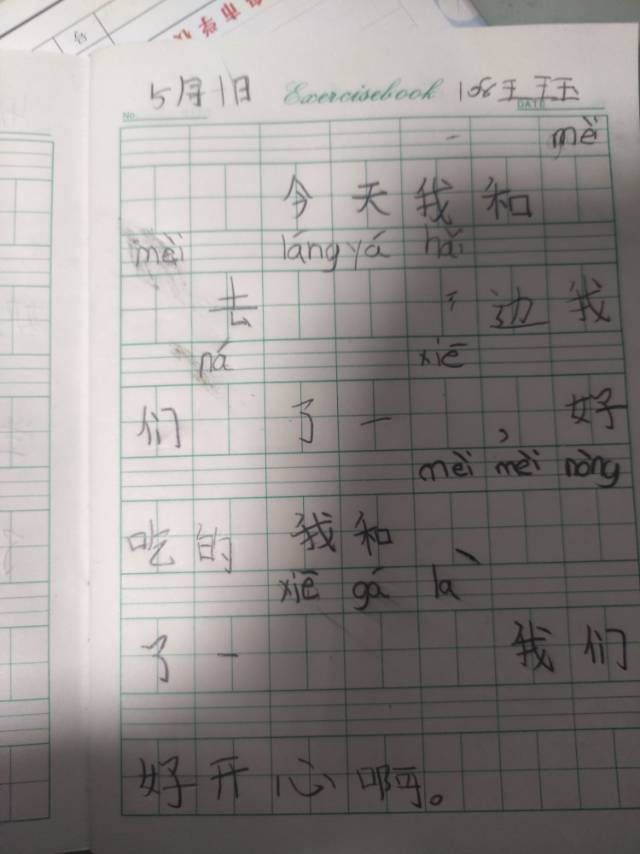 5月1日 Exercisebook
No. DATE
mèi
今天我和
mèi lángyá hǎi
去 氵边我
ná xiē
们 了一 ，好
mèi mèi nòng
吃的 我和、
xiē gá là
了一 我们
好开心啊。